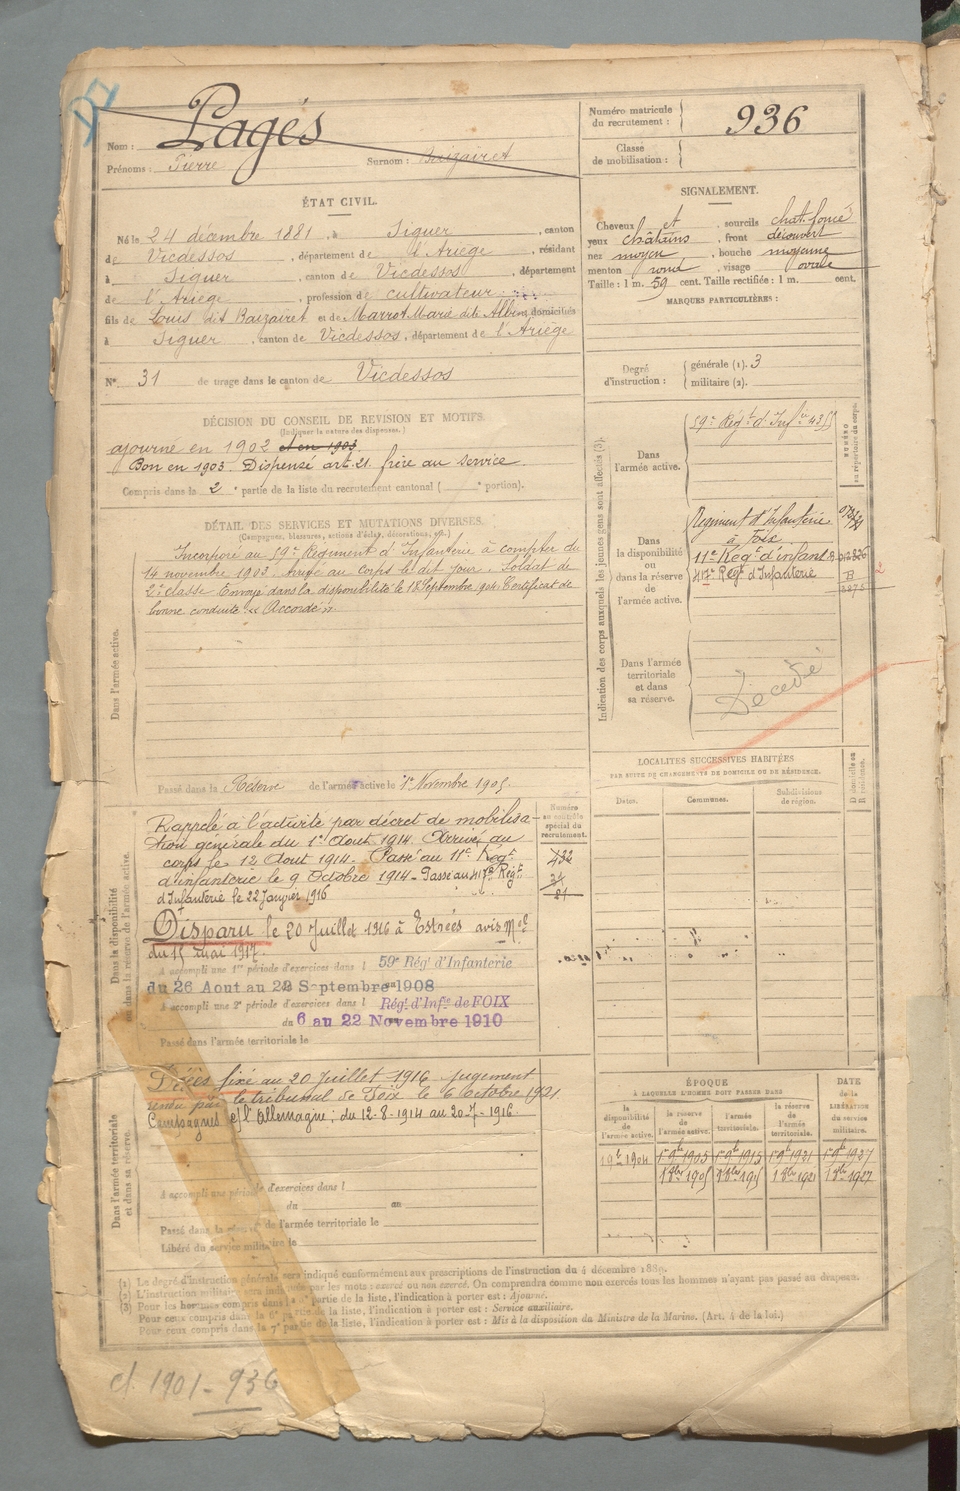 Nom : Pagès
Prénoms : Pierre Surnom : Baizairet
Numéro matricule du recrutement : 936
Classe de mobilisation :
ÉTAT CIVIL.
Né le 24 décembre 1881, à Siguer, canton
de Vicdessos, département de l'Ariège, résidant
à Siguer, canton de Vicdessos, département
de l'Ariège, profession de cultivateur
fils de Louis dit Baizairet et de Marrot Marie dite Albine domiciliés
à Siguer, canton de Vicdessos, département de l'Ariège
N° 31 de tirage dans le canton de Vicdessos
SIGNALEMENT.
Cheveux et sourcils chat. foncé
yeux châtains, front découvert
nez moyen, bouche moyenne
menton rond, visage ovale
Taille : 1 m. 59 cent. Taille rectifiée : 1 m. cent.
MARQUES PARTICULIÈRES :
Degré d'instruction : générale (1). 3
militaire (2).
DÉCISION DU CONSEIL DE REVISION ET MOTIFS.
(Indiquer la nature des dispenses.)
ajourné en 1902 et en 1903
Bon en 1903. Dispensé art. 21. frère au service.
Compris dans la 2e partie de la liste du recrutement cantonal ( e portion).
DÉTAIL DES SERVICES ET MUTATIONS DIVERSES.
(Campagnes, blessures, actions d'éclat, décorations, etc.)
Dans l'armée active.
Incorporé au 59e Régiment d'Infanterie à compter du
14 novembre 1903. Arrivé au corps le dit jour. Soldat de
2e classe. Envoyé dans la disponibilité le 18 Septembre 1904. Certificat de
bonne conduite « Accordé ».
Passé dans la Réserve de l'armée active le 1er Novembre 1905.
Indication des corps auxquels les jeunes gens sont affectés (3).
NUMÉRO au répertoire du corps.
Dans l'armée active.
59e Régt d'Infie 4355
Dans la disponibilité ou dans la réserve de l'armée active.
Régiment d'Infanterie
à Foix
11e Régt d'infant.
417e Régt d'Infanterie
Dans l'armée territoriale et dans sa réserve.
Décédé
LOCALITÉS SUCCESSIVES HABITÉES
PAR SUITE DE CHANGEMENTS DE DOMICILE OU DE RÉSIDENCE.
Dates. Communes. Subdivisions de région. D domicile ou R résidence.
Dans la disponibilité ou dans la réserve de l'armée active.
Numéro au contrôle spécial du recrutement.
Rappelé à l'activité par décret de mobilisa-
tion générale du 1er Août 1914. Arrivé au
corps le 12 Août 1914. Passé au 11e Régt
d'infanterie le 9 Octobre 1914. Passé au 417e Régt
d'Infanterie le 22 Janvier 1916
Disparu le 20 Juillet 1916 à Estrées avis Mel
du 15 mai 1917.
A accompli une 1re période d'exercices dans l 59e Régt d'Infanterie
du 26 Aout au 22 Septembre 1908
A accompli une 2e période d'exercices dans l Régt d'Infie de FOIX
du 6 au 22 Novembre 1910
Passé dans l'armée territoriale le
Dans l'armée territoriale et dans sa réserve.
Décès fixé au 20 Juillet 1916 jugement
rendu par le tribunal de Foix le 6 octobre 1921.
Campagnes c/ l'Allemagne ; du 12-8-1914 au 20-7-1916.
A accompli une période d'exercices dans l
du au
Passé dans la réserve de l'armée territoriale le
Libéré du service militaire le
ÉPOQUE
À LAQUELLE L'HOMME DOIT PASSER DANS
DATE de la LIBÉRATION du service militaire.
la disponibilité de l'armée active. la réserve de l'armée active. l'armée territoriale. la réserve de l'armée territoriale.
1er 9bre 1905 1er 9bre 1915 1er 9bre 1921 1er 9bre 1927
1 8bre 1905 1 8bre 1915 1 8bre 1921 1 8bre 1927
(1) Le degré d'instruction générale sera indiqué conformément aux prescriptions de l'instruction du 4 décembre 1889.
(2) L'instruction militaire sera indiquée par les mots : exercé ou non exercé. On comprendra comme non exercés tous les hommes n'ayant pas passé au drapeau.
(3) Pour les hommes compris dans la partie de la liste, l'indication à porter est : Ajourné.
Pour ceux compris dans la 6e partie de la liste, l'indication à porter est : Service auxiliaire.
Pour ceux compris dans la 7e partie de la liste, l'indication à porter est : Mis à la disposition du Ministre de la Marine. (Art. 4 de la loi.)
cl. 1901 - 936